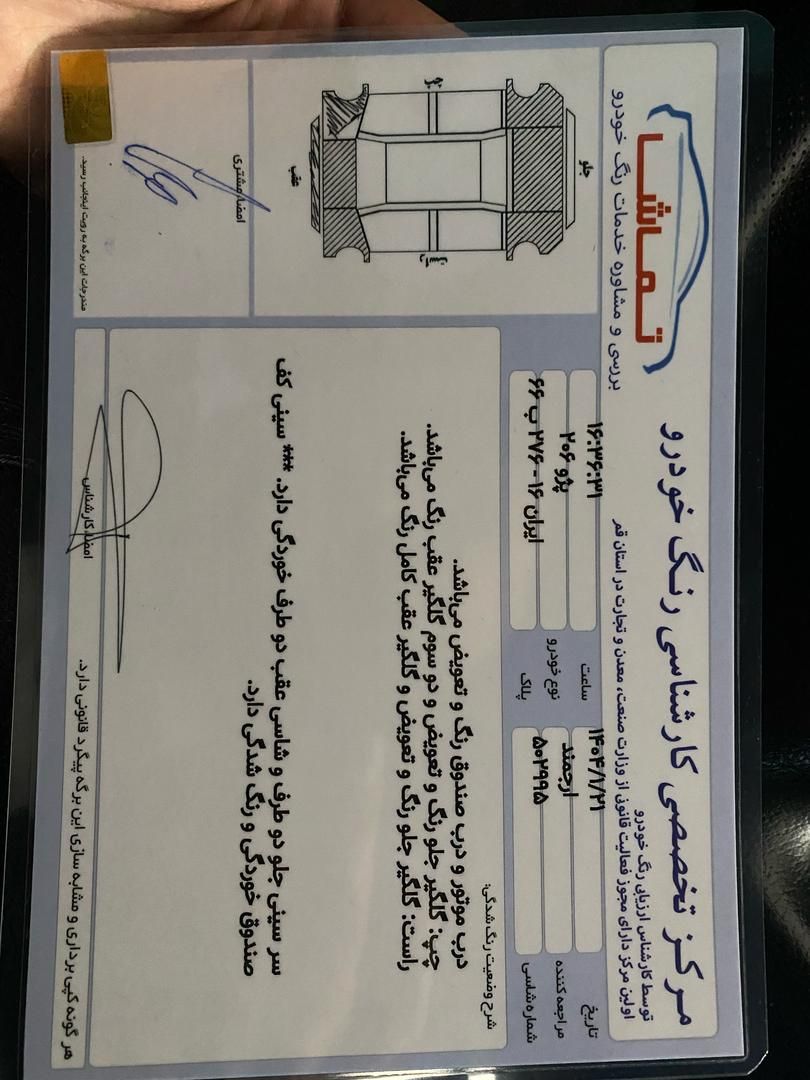 مرکز تخصصی کارشناسی رنگ خودرو
توسط کارشناس ارزیابی رنگ خودرو
اولین مرکز دارای مجوز فعالیت قانونی از وزارت صنعت، معدن و تجارت در استان قم
تماشا
بررسی و مشاوره خدمات رنگ خودرو
تاریخ ۱۴۰۴/۱/۲۱ ساعت ۱۶:۳۶:۳۱
مراجعه کننده ارجمند نوع خودرو پژو ۲۰۶
شماره شاسی ۵۰۲۹۹۵ پلاک ایران ۱۶ - ۲۷۶ ب ۶۶
شرح وضعیت رنگ شدگی:
درب موتور و درب صندوق رنگ و تعویض می‌باشد.
چپ: گلگیر جلو رنگ و تعویض و دو سوم گلگیر عقب رنگ می‌باشد.
راست: گلگیر جلو رنگ و تعویض و گلگیر عقب کامل رنگ می‌باشد.
سر سینی جلو دو طرف و شاسی عقب دو طرف خوردگی دارد. *** سینی کف
صندوق خوردگی و رنگ شدگی دارد.
جلو
چپ
راست
عقب
امضاء مشتری
مندرجات این برگه به رویت اینجانب رسید.
امضاء کارشناس
هر گونه کپی برداری و مشابه سازی این برگه پیگرد قانونی دارد.